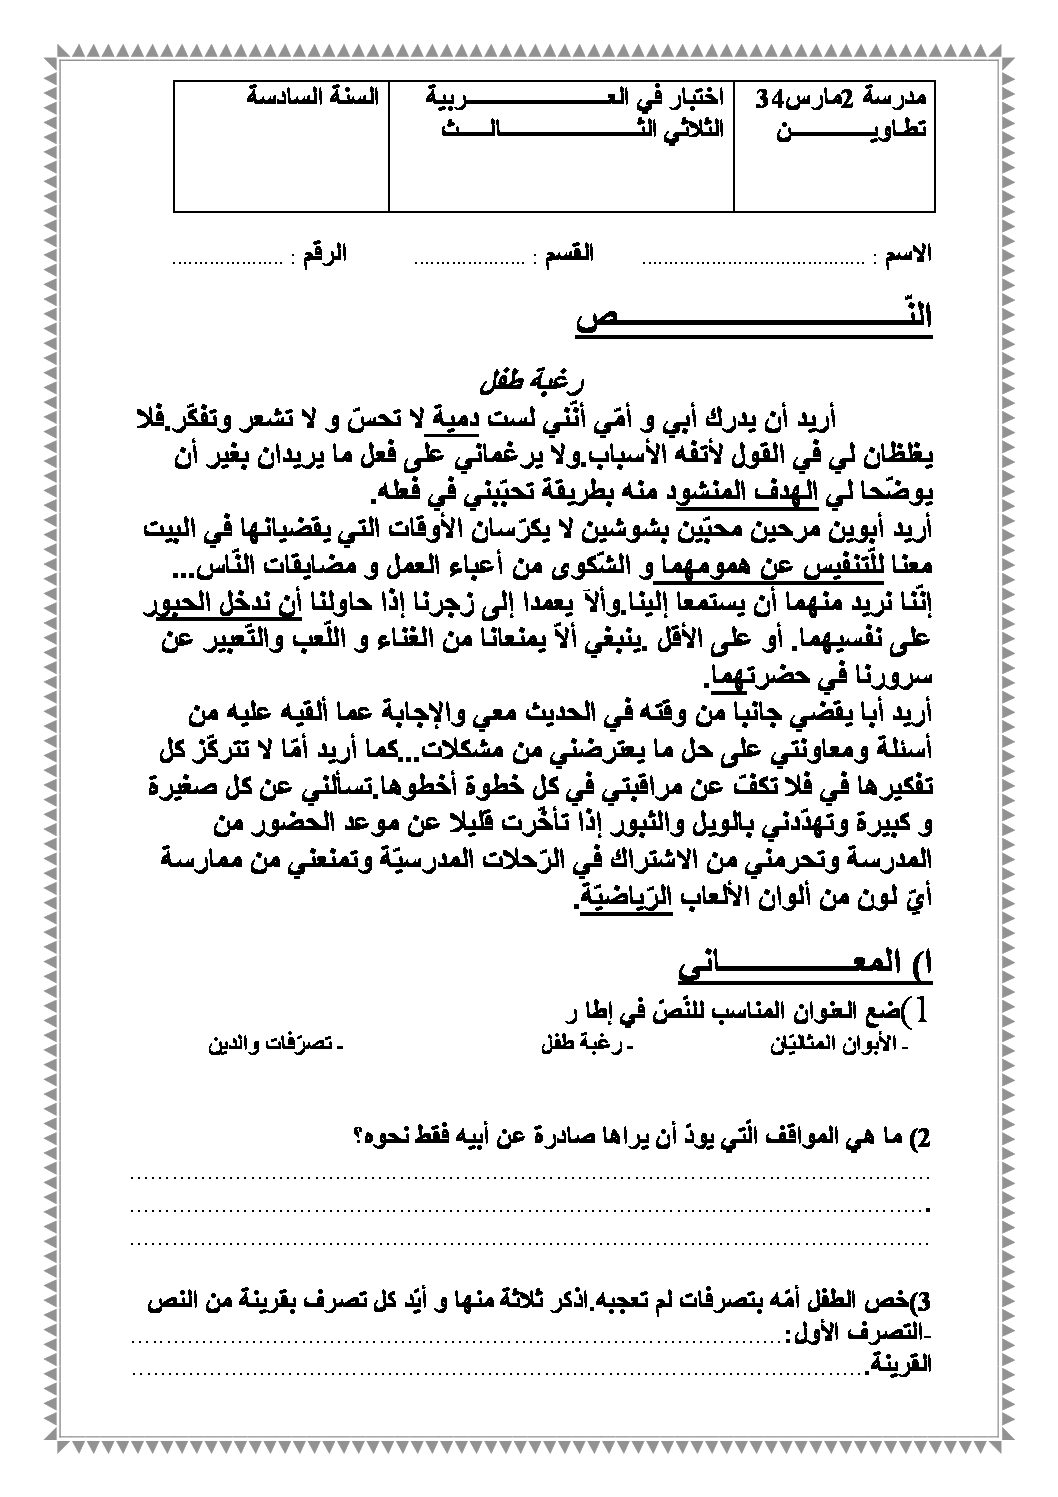 مدرسة 2مارس34
تطاوين
اختبار في العربية
الثلاثي الثالث
السنة السادسة
الاسم : ....................................... القسم : .................... الرقم : ....................
النّص
رغبة طفل
أريد أن يدرك أبي و أمّي أنّني لست دمية لا تحسّ و لا تشعر وتفكّر.فلا
يغلظان لي في القول لأتفه الأسباب.ولا يرغماني على فعل ما يريدان بغير أن
يوضّحا لي الهدف المنشود منه بطريقة تحبّبني في فعله.
أريد أبوين مرحين محبّين بشوشين لا يكرّسان الأوقات التي يقضيانها في البيت
معنا للّتنفيس عن همومهما و الشّكوى من أعباء العمل و مضايقات النّاس...
إنّنا نريد منهما أن يستمعا إلينا.وألاّ يعمدا إلى زجرنا إذا حاولنا أن ندخل الحبور
على نفسيهما. أو على الأقل .ينبغي ألاّ يمنعانا من الغناء و اللّعب والتّعبير عن
سرورنا في حضرتهما.
أريد أبا يقضي جانبا من وقته في الحديث معي والإجابة عما ألقيه عليه من
أسئلة ومعاونتي على حل ما يعترضني من مشكلات...كما أريد أمّا لا تتركّز كل
تفكيرها في فلا تكفّ عن مراقبتي في كل خطوة أخطوها.تسألني عن كل صغيرة
و كبيرة وتهدّدني بالويل والثبور إذا تأخّرت قليلا عن موعد الحضور من
المدرسة وتحرمني من الاشتراك في الرّحلات المدرسيّة وتمنعني من ممارسة
أيّ لون من ألوان الألعاب الرّياضيّة.
ا) المعاني
1)ضع العنوان المناسب للنّصّ في إطا ر
- الأبوان المثاليّان - رغبة طفل - تصرّفات والدين
2) ما هي المواقف الّتي يودّ أن يراها صادرة عن أبيه فقط نحوه؟
................................................................................
.................................................................................
................................................................................
3)خص الطفل أمّه بتصرفات لم تعجبه.اذكر ثلاثة منها و أيّد كل تصرف بقرينة من النص
-التصرف الأول:................................................................
القرينة.........................................................................